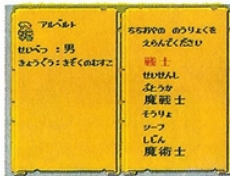 アルベルト
せいべつ：男
きょうぐう：きぞくのむすこ
ちちおやの のうりょくを
えらんでください
戦士
せいせんし
ぶとうか
魔戦士
そうりょ
シーフ
しじん
魔術士